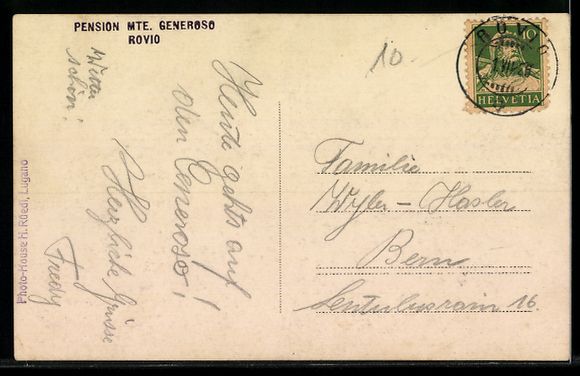 PENSION MTE. GENEROSO
ROVIO
Wetter
schön!
Heute gehts auf
den Generoso!
Herzliche Grüsse
Fredy
Photo-House H. Rüedi, Lugano
10
ROVIO
10
HELVETIA
Familie
Wyler-Hasler
Bern
Sentulusrain 16.